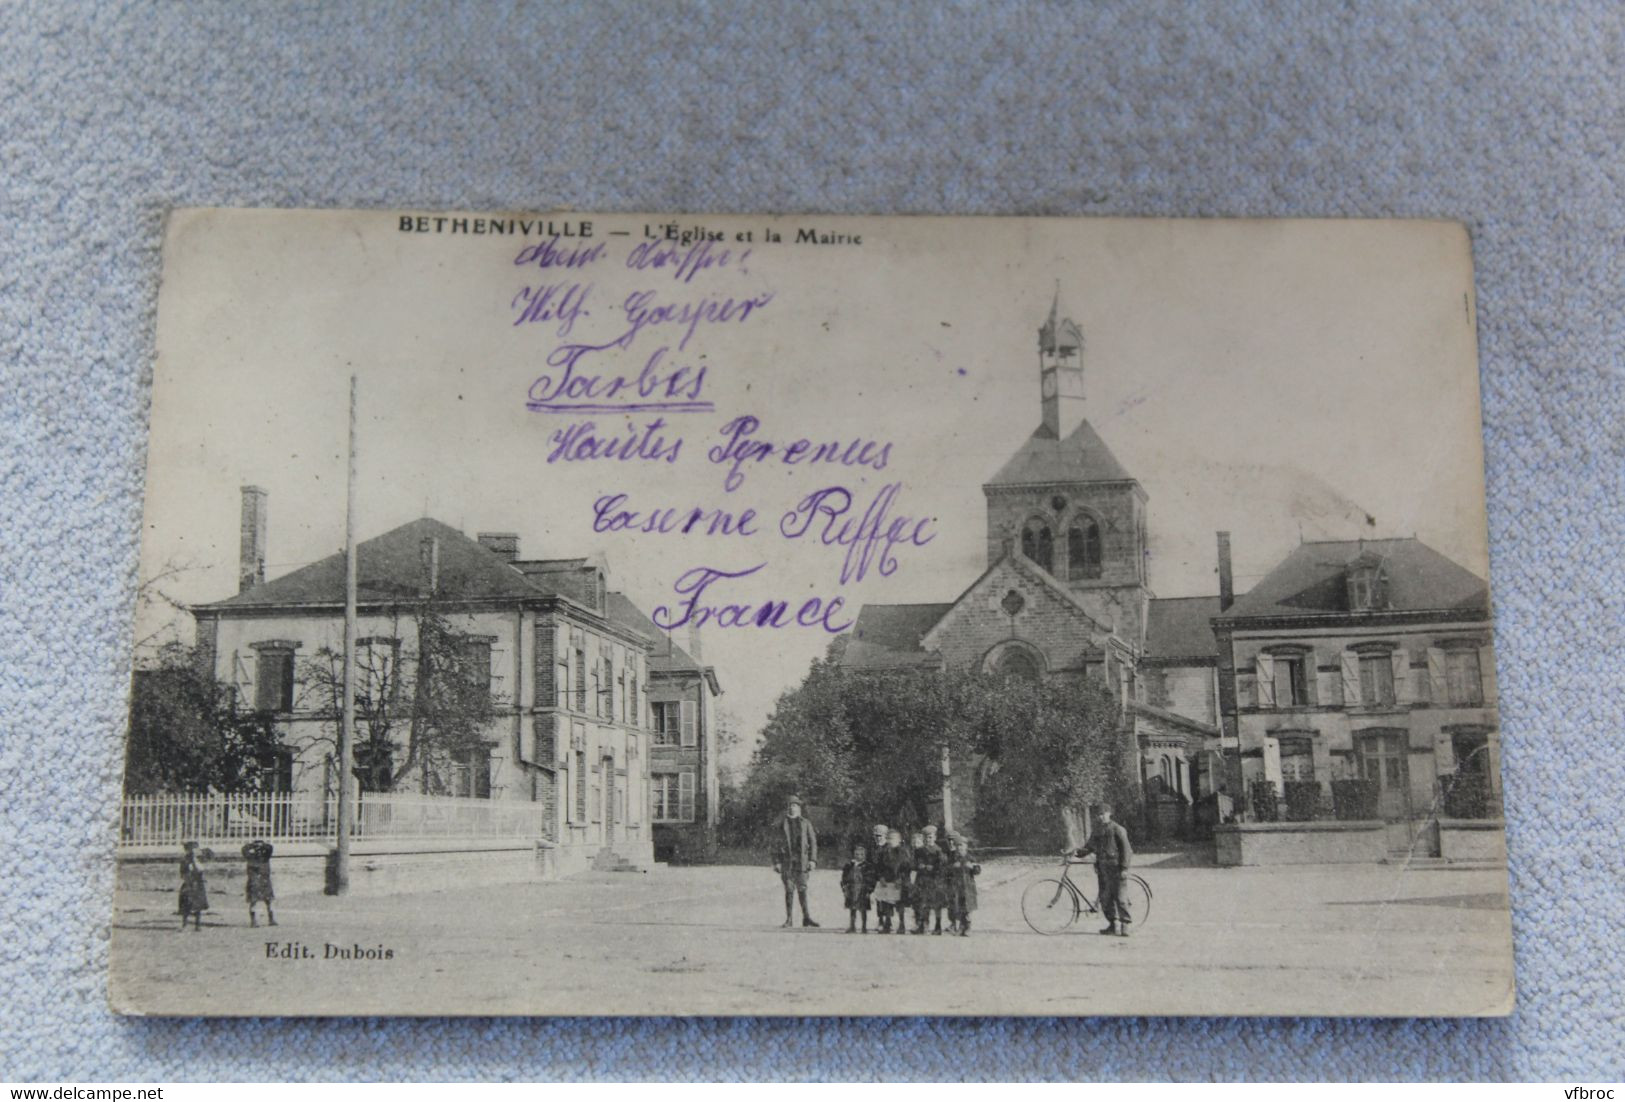 BETHENIVILLE — L'Église et la Mairie
Wilh. Gasper
Tarbes
Hautes Pyrenees
Caserne Reffye
France
Edit. Dubois
delcampe.net
vfbroc